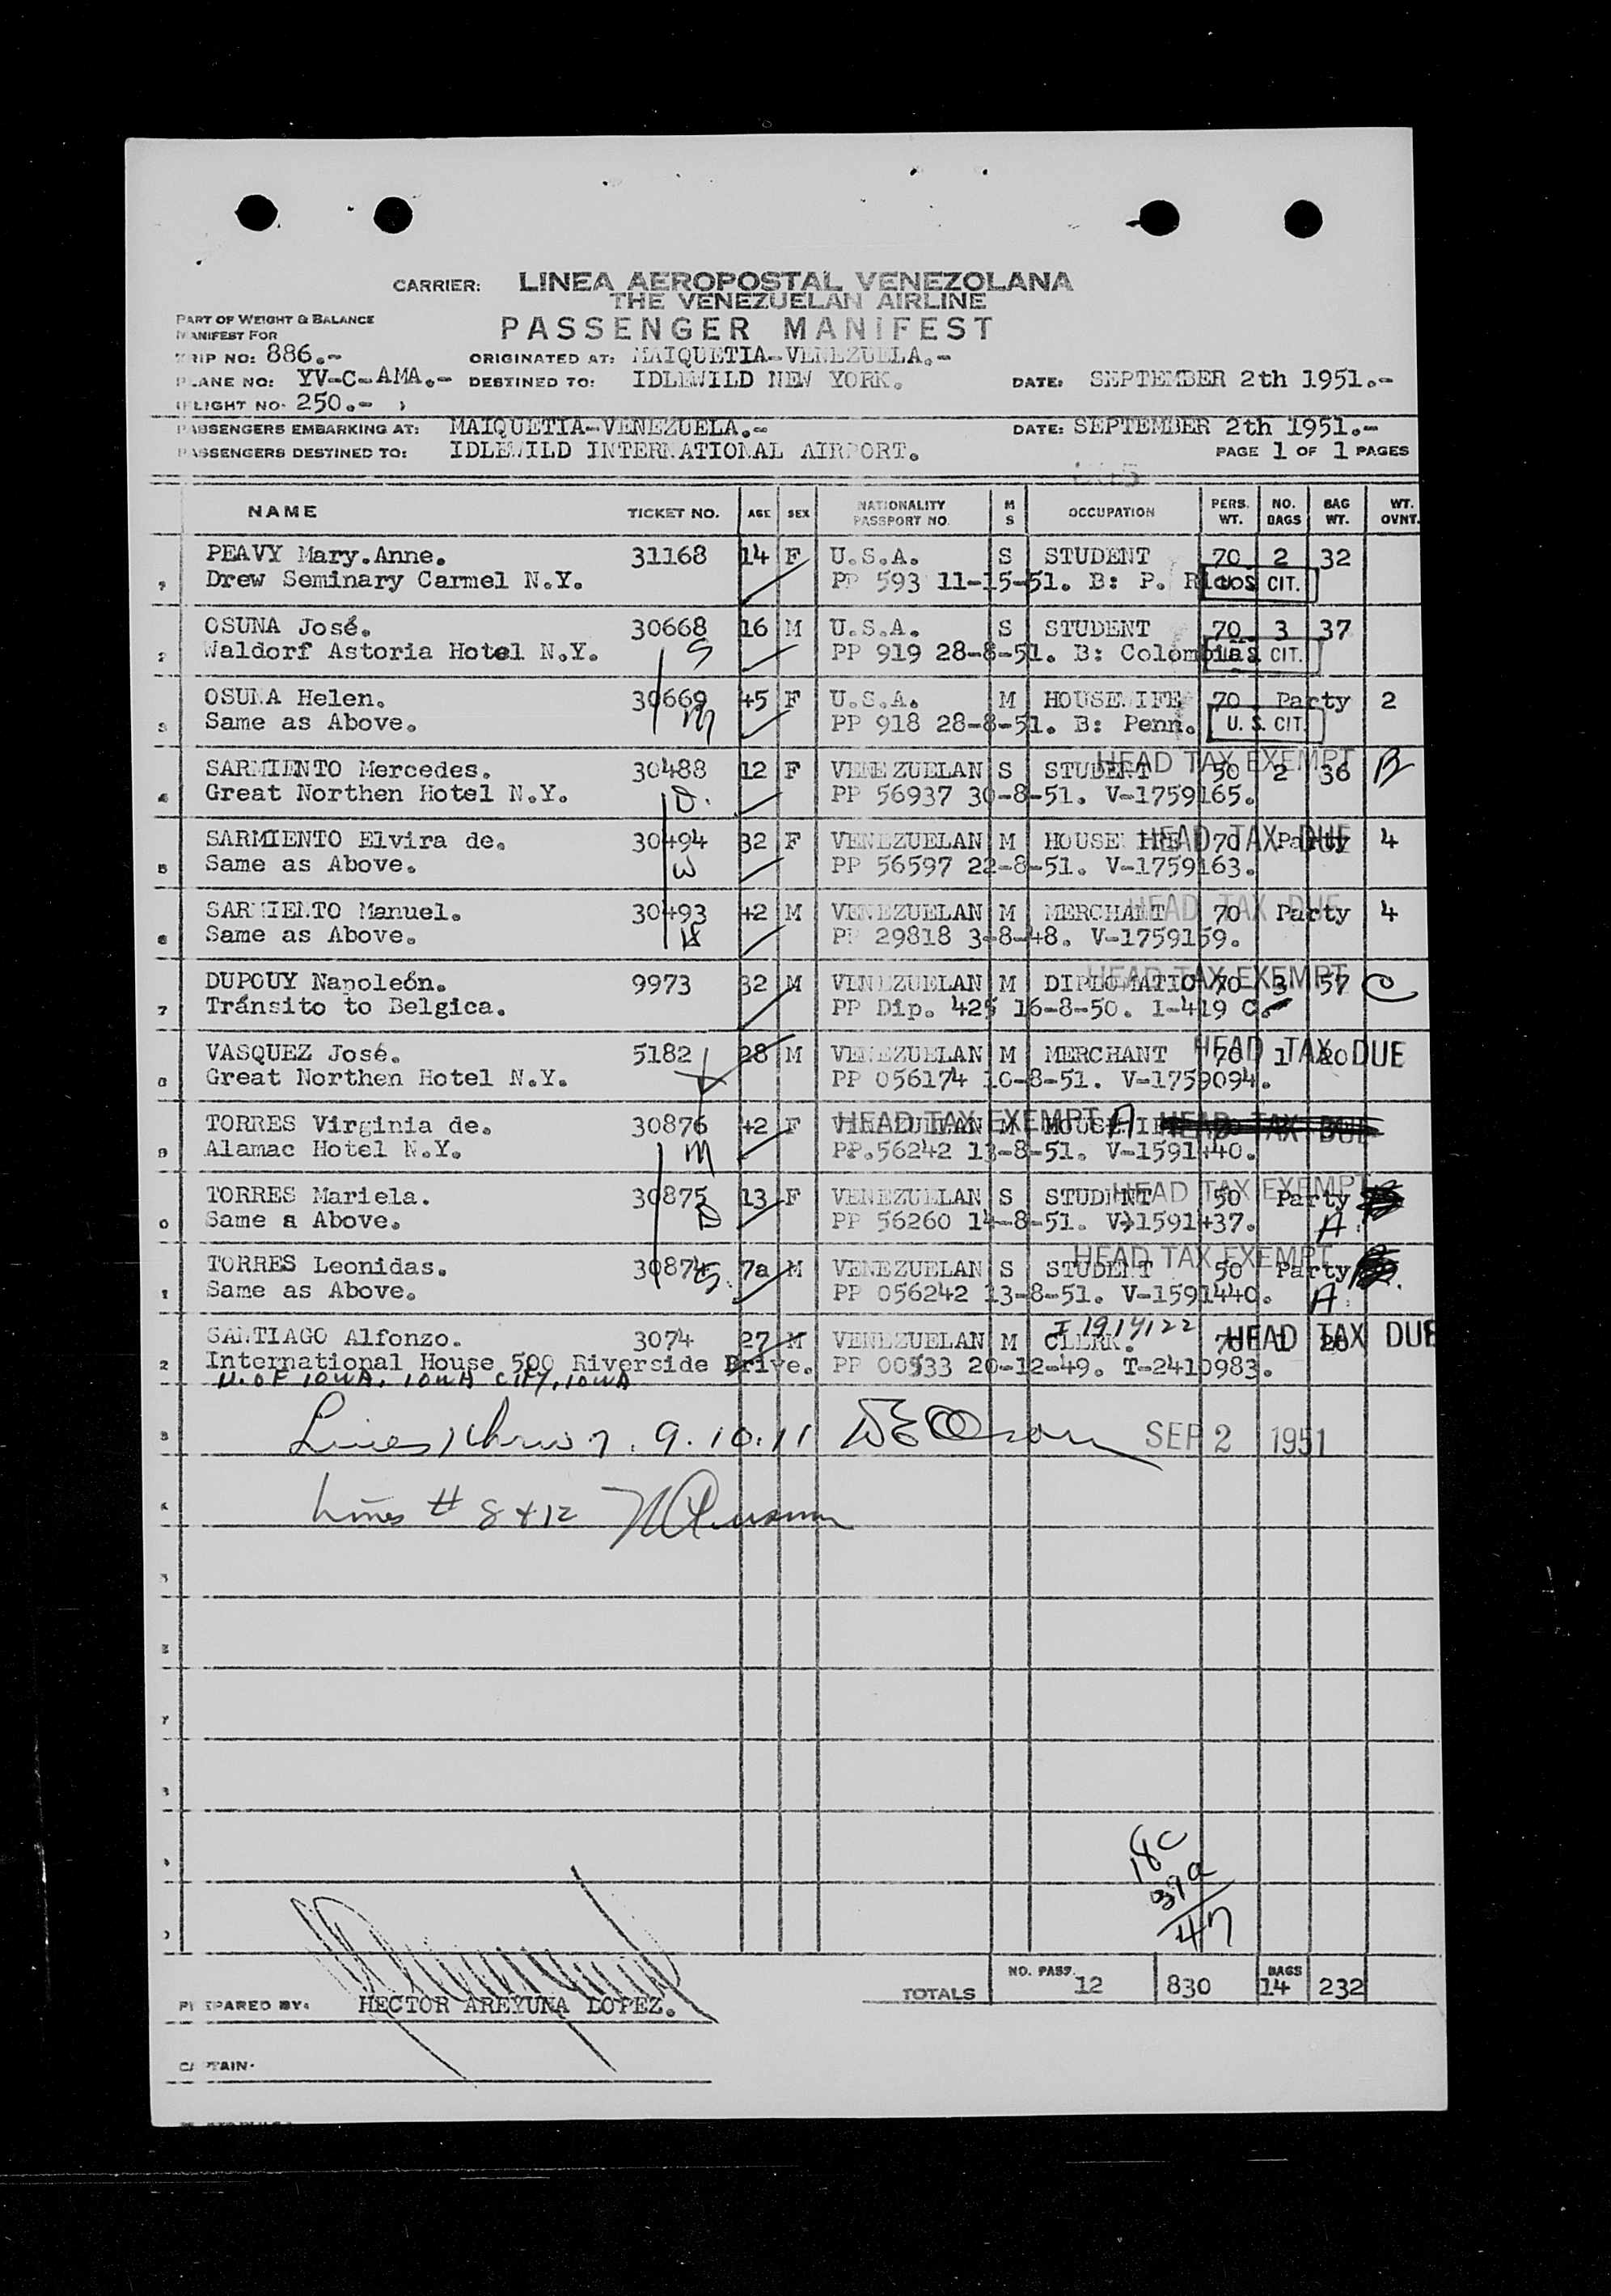 CARRIER: LINEA AEROPOSTAL VENEZOLANA
THE VENEZUELAN AIRLINE
PART OF WEIGHT & BALANCE
MANIFEST FOR
PASSENGER MANIFEST
TRIP NO: 886.- ORIGINATED AT: MAIQUETIA-VENEZUELA.-
PLANE NO: YV-C-AMA.- DESTINED TO: IDLEWILD NEW YORK. DATE: SEPTEMBER 2th 1951.-
(FLIGHT NO. 250.- )
PASSENGERS EMBARKING AT: MAIQUETIA-VENEZUELA.- DATE: SEPTEMBER 2th 1951.-
PASSENGERS DESTINED TO: IDLEWILD INTERNATIONAL AIRPORT. PAGE 1 OF 1 PAGES
NAME TICKET NO. AGE SEX NATIONALITY PASSPORT NO. M S OCCUPATION PERS. WT. NO. BAGS BAG WT. WT. OVNT.
PEAVY Mary.Anne. 31168 14 F U.S.A. S STUDENT 70 2 32
Drew Seminary Carmel N.Y. PP 593 11-15-51. B: P. Ricos CIT.
OSUNA José. 30668 16 M U.S.A. S STUDENT 70 3 37
2 Waldorf Astoria Hotel N.Y. S PP 919 28-8-51. B: Colombia. CIT.
OSUNA Helen. 30669 45 F U.S.A. M HOUSEWIFE 70 Party 2
3 Same as Above. M PP 918 28-8-51. B: Penn. U. S. CIT.
SARMIENTO Mercedes. 30488 12 F VENEZUELAN S STUDENT HEAD TAX EXEMPT 50 2 36 B
4 Great Northen Hotel N.Y. D. PP 56937 30-8-51. V-1759165.
SARMIENTO Elvira de. 30494 32 F VENEZUELAN M HOUSEWIFE HEAD TAX DUE 70 Party 4
5 Same as Above. W PP 56597 22-8-51. V-1759163.
SARMIENTO Manuel. 30493 42 M VENEZUELAN M MERCHANT HEAD TAX DUE 70 Party 4
6 Same as Above. H PP 29818 3-8-48. V-1759159.
DUPOUY Napoleón. 9973 32 M VENEZUELAN M DIPLOMATIC HEAD TAX EXEMPT 70 3 57 C
7 Tránsito to Belgica. PP Dip. 425 16-8-50. I-419 C.
VASQUEZ José. 5182 28 M VENEZUELAN M MERCHANT HEAD TAX DUE 70 1 20
8 Great Northen Hotel N.Y. PP 056174 10-8-51. V-1759094.
TORRES Virginia de. 30876 42 F VENEZUELAN M HOUSEWIFE HEAD TAX EXEMPT A HEAD TAX DUE
9 Alamac Hotel N.Y. M PP.56242 13-8-51. V-1591440.
TORRES Mariela. 30875 13 F VENEZUELAN S STUDENT HEAD TAX EXEMPT 50 Party
0 Same a Above. D PP 56260 14-8-51. V-1591437. A
TORRES Leonidas. 30874 7a M VENEZUELAN S STUDENT HEAD TAX EXEMPT 50 Party
1 Same as Above. S. PP 056242 13-8-51. V-1591440. A
I 1914122
SANTIAGO Alfonzo. 3074 27 M VENEZUELAN M CLERK. 70 1 20 HEAD TAX DUE
2 International House 500 Riverside Drive. PP 00533 20-12-49. T-2410983.
U. OF IOWA, IOWA CITY, IOWA
Lines 1 thru 7. 9. 10. 11 SEP 2 1951
Lines # 8 + 12
18c
39a
47
TOTALS NO. PASS. 12 830 BAGS 14 232
PREPARED BY: HECTOR AREYUNA LOPEZ.
CAPTAIN.